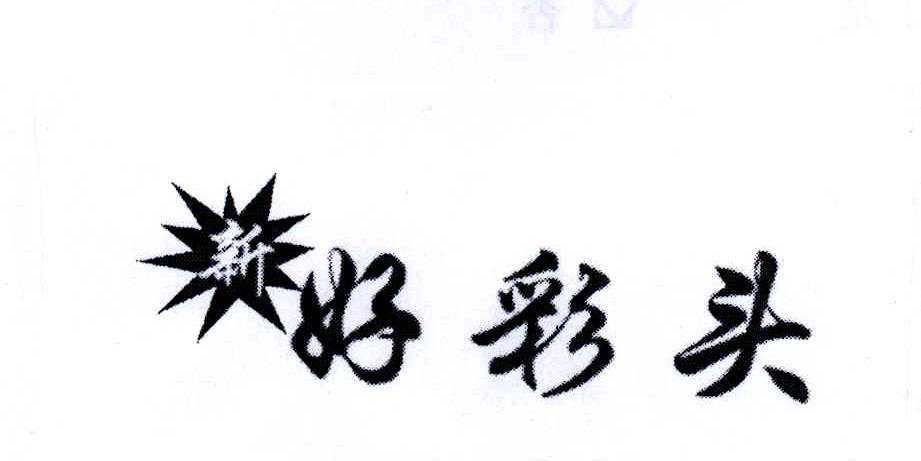 新好彩头